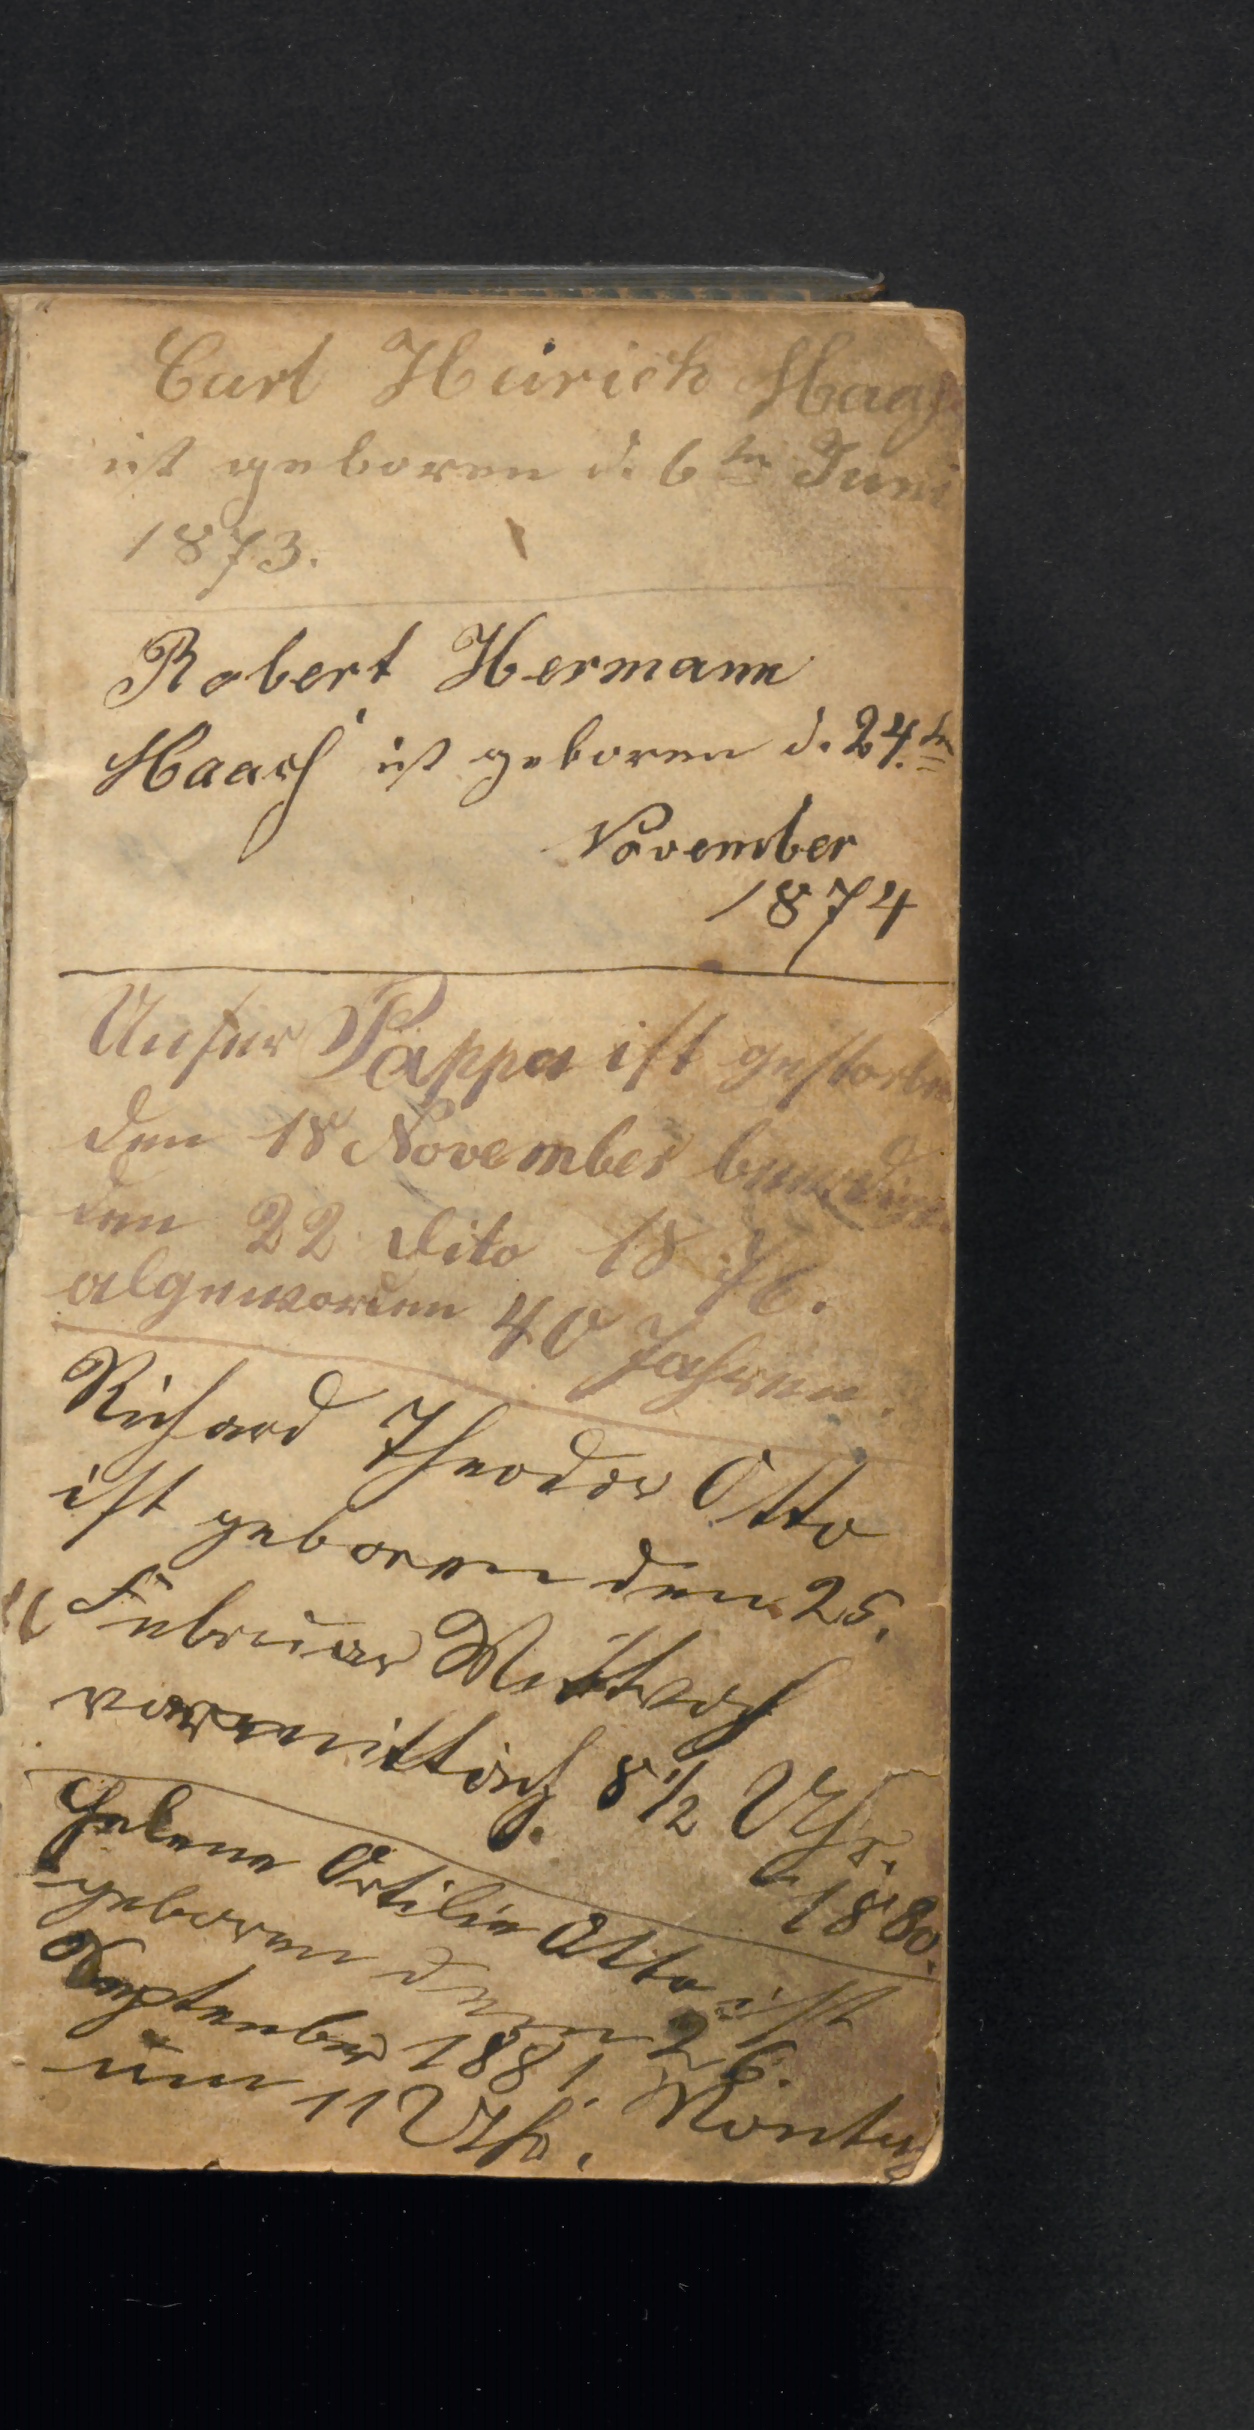 Carl Heinrich Haasf
ist geboren d. 6ten Juni
1873.
Robert Hermann
Haasf ist geboren d. 24.ten
November
1874
Unser Pappa ist gestorben
den 18 November beerdigt
den 22 dito 1876.
altgeworden 40 Jahren.
Richard Theodor Otto
ist geboren den 25.
Februar Mittwoch
vormittag 8 1/2 Uhr.
1880.
Helene Ottilie Otto ist
geboren den 26.
September 1881. Montag
um 11 Uhr.